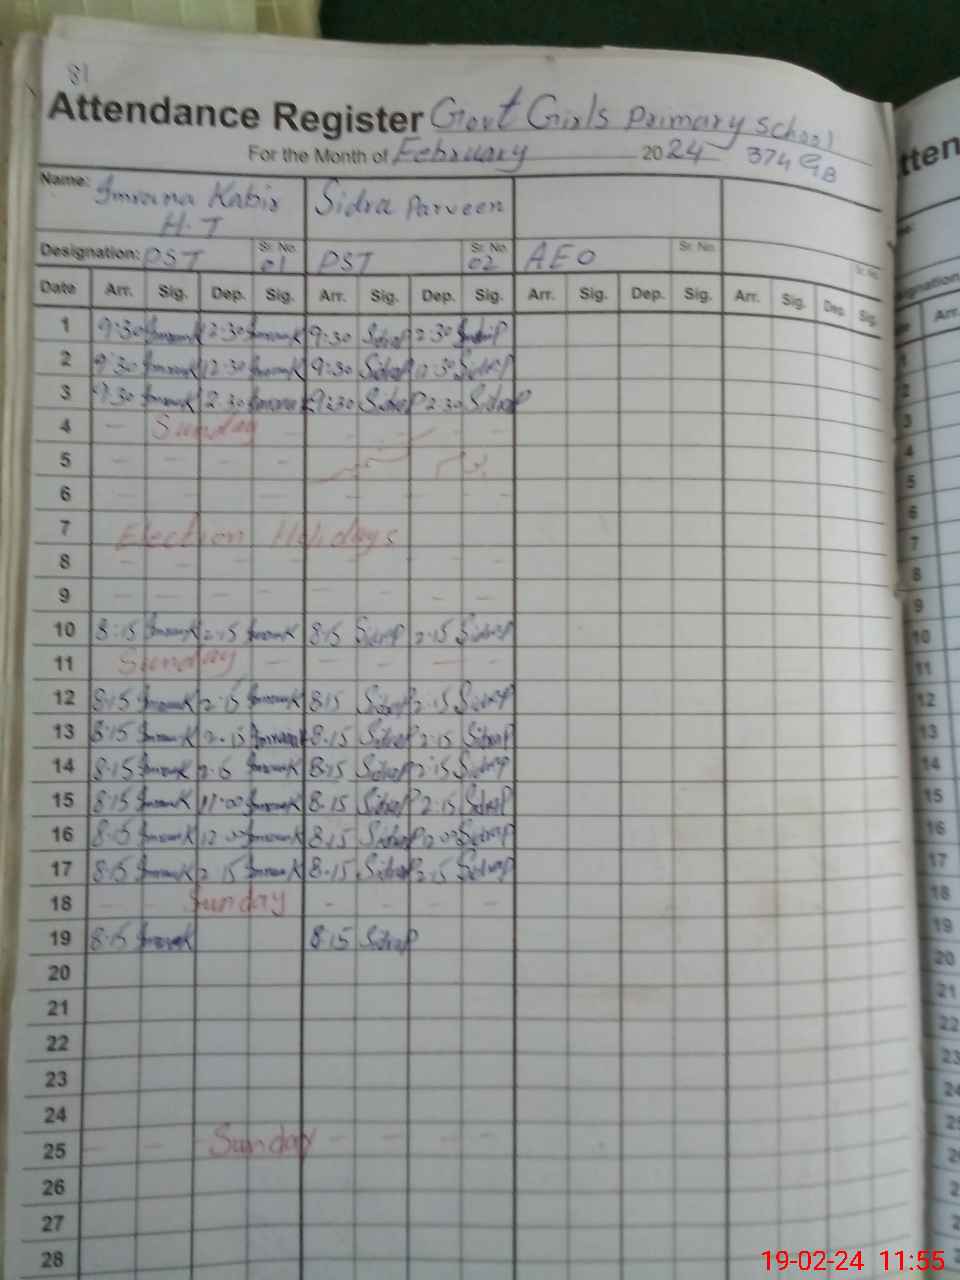 81
Attendance Register Govt Girls Primary School
For the Month of February 2024 374 GB
Name: Imrana Kabir Sidra Parveen
H.T
Designation: PST Sr. No. 01 PST Sr. No. 02 AEO Sr. No. Sr. No.
Date Arr. Sig. Dep. Sig. Arr. Sig. Dep. Sig. Arr. Sig. Dep. Sig. Arr. Sig. Dep. Sig.
1 9:30 ImranK 2:30 ImranK 9:30 SidraP 2:30 SidraP
2 9:30 ImranK 12:30 ImranK 9:30 SidraP 12:30 SidraP
3 9:30 ImranK 2:30 Imrana K 9:30 SidraP 2:30 SidraP
4 - Sunday - - - - -
5 - - - -
6 - - - - - - - -
7 Election Holidays
8 - - - - - - - -
9 - - - - - - - -
10 8:15 ImranK 2:15 ImranK 8:15 SidraP 2:15 SidraP
11 Sunday - - - - -
12 8:15 ImranK 2:15 ImranK 8:15 SidraP 2:15 SidraP
13 8:15 ImranK 2:15 ImranaK 8:15 SidraP 2:15 SidraP
14 8:15 ImranK 2:15 ImranK 8:15 SidraP 2:15 SidraP
15 8:15 ImranK 11:00 ImranK 8:15 SidraP 2:15 SidraP
16 8:15 ImranK 12:00 ImranK 8:15 SidraP 12:00 SidraP
17 8:15 ImranK 2:15 ImranK 8:15 SidraP 2:15 SidraP
18 - - Sunday - - - -
19 8:15 ImranK 8:15 SidraP
20
21
22
23
24
25 - - Sunday - - - -
26
27
28
19-02-24 11:55